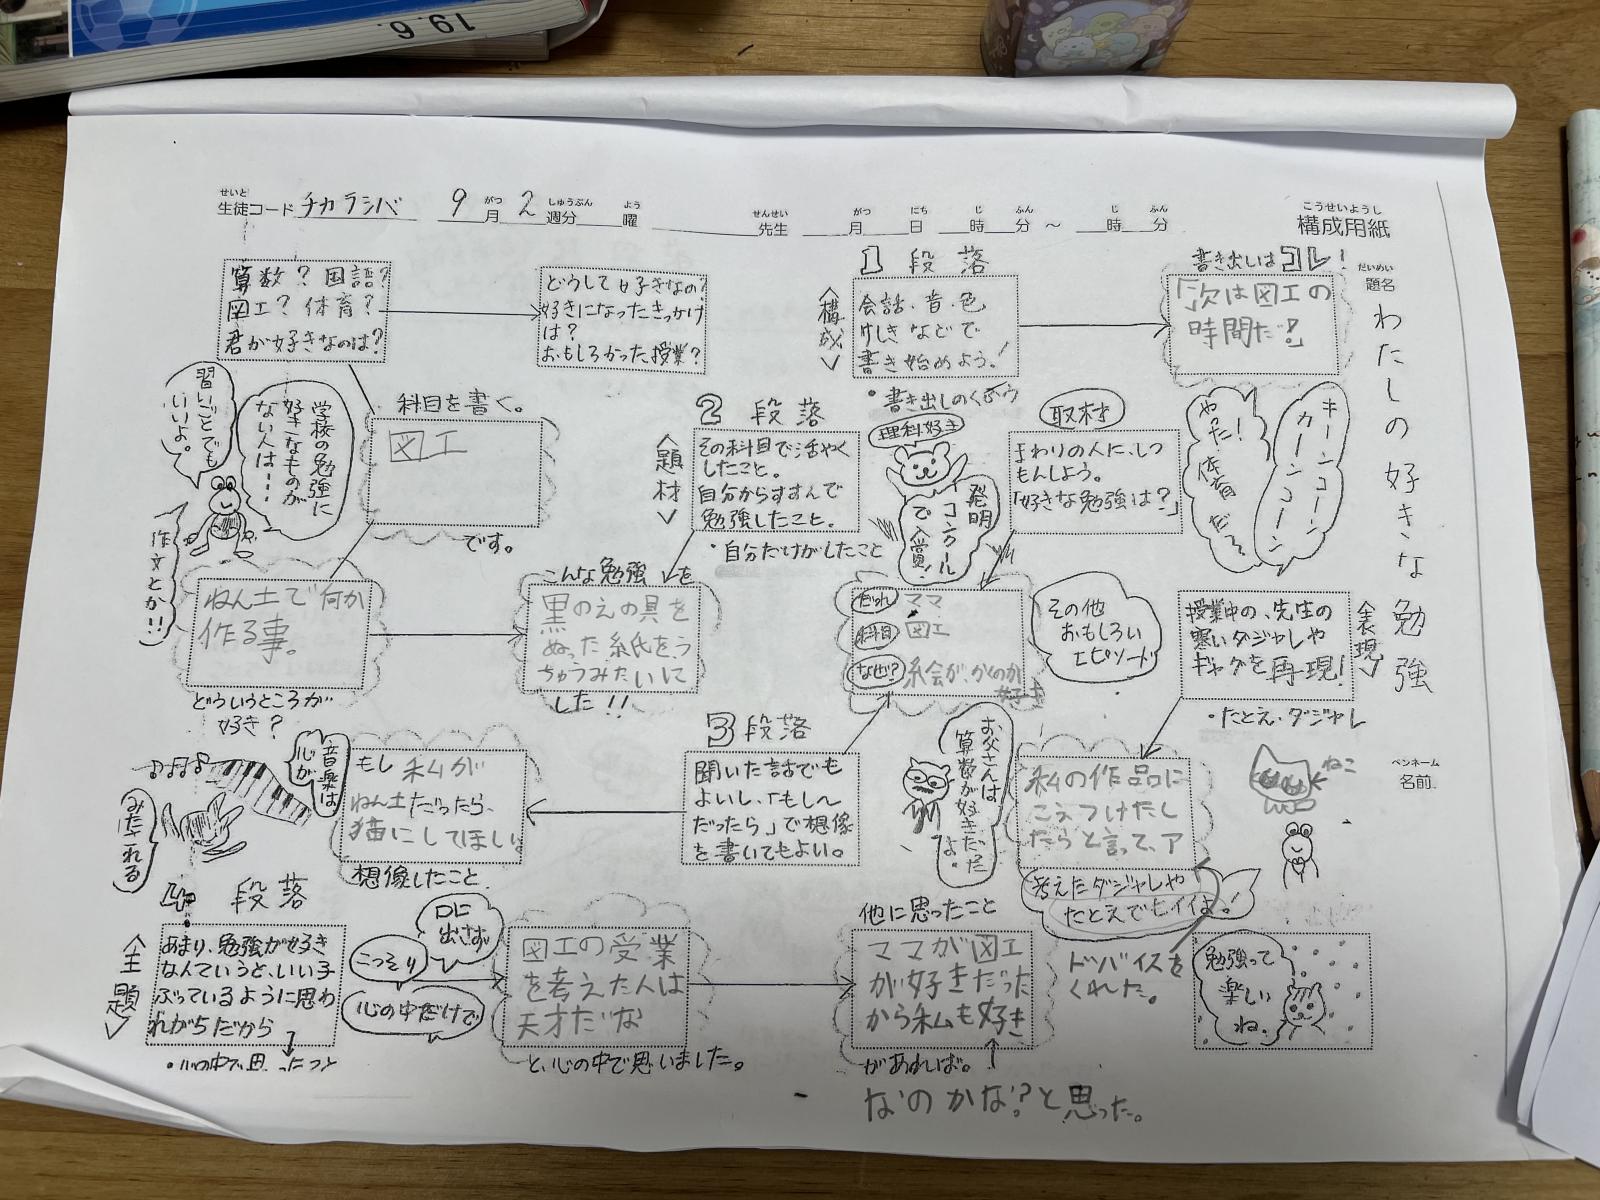 19.6.
せいと
生徒コード チカラシバ
9月2週分 曜
がつ しゅうぶん よう
せんせい
先生
がつ にち じ ふん じ ふん
月 日 時 分 ～ 時 分
こうせいようし
構成用紙
だいめい
題名
わたしの好きな勉強
ペンネーム
名前
ねこ
算数？国語？
図工？体育？
君が好きなのは？
どうして好きなの？
好きになったきっかけ
は？
おもしろかった授業？
1段落
＜構成＞
会話・音・色
けしきなどで
書き始めよう！
・書き出しのくふう
書き出しはコレ！
「次は図工の
時間だ！」
キーンコーン
カーンコーン
やった！
体育だぞ
習いごとでも
いいよ。
学校の勉強に
好きなものが
ない人は…
作文とか！！
科目を書く。
図工
です。
2段落
＜題材＞
その科目で活やく
したこと。
自分からすすんで
勉強したこと。
・自分だけがしたこと
理科好き
発明
コンクール
で入賞！
取材
まわりの人に、しつ
もんしよう。
「好きな勉強は？」
ねん土で何か
作る事。
どういうところが
好き？
こんな勉強を
黒のえの具を
ぬった紙をう
ちゅうみたいに
した！！
だれ ママ
科目 図工
なぜ？ 絵が、かくのが
好き
その他
おもしろい
エピソード
授業中の、先生の
寒いダジャレや
ギャグを再現！
＜表現＞
・たとえ・ダジャレ
音楽は
心が
みたされる
もし私が
ねん土だったら、
猫にしてほしい
想像したこと
3段落
聞いた話でも
よいし、「もし～
だったら」で想像
を書いてもよい。
お父さんは
算数が好きだった
よ。
私の作品に
こえつけたし
たらと言って、ア
ドバイスを
くれた。
考えたダジャレや
たとえでもイイよ！
4段落
＜主題＞
あまり、勉強が好き
なんていうと、いい子
ぶっているように思わ
れがちだから
・心の中で思ったこと
口に
出さず
こっそり
心の中だけで
図工の受業
を考えた人は
天才だな
と、心の中で思いました。
他に思ったこと
ママが図工
が好きだった
から私も好き
があれば。
なのかな？と思った。
勉強って
楽しい
ね。